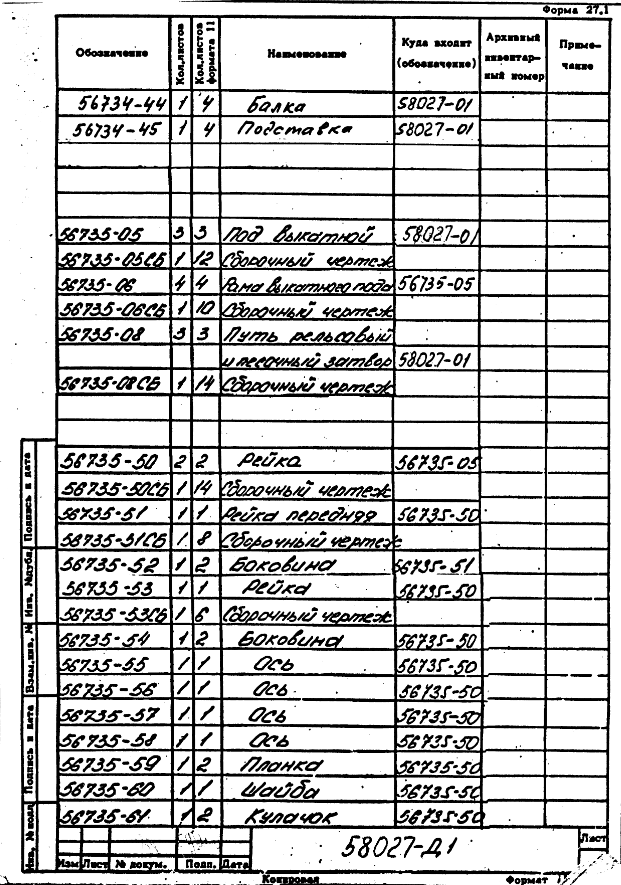 Форма 27.1
Обозначение Кол.листов Кол.листов формата 11 Наименование Куда входит (обозначение) Архивный инвентарный номер Примечание
56734-44 1 4 Балка 58027-01
56734-45 1 4 Подставка 58027-01
56735-05 3 3 Под выкатной 58027-01
56735-05СБ 1 12 Сборочный чертеж
56735-06 4 4 Рама выкатного пода 56735-05
56735-06СБ 1 10 Сборочный чертеж
56735-08 3 3 Путь рельсовый
и песочный затвор 58027-01
56735-08СБ 1 14 Сборочный чертеж
56735-50 2 2 Рейка 56735-05
56735-50СБ 1 14 Сборочный чертеж
56735-51 1 1 Рейка передняя 56735-50
56735-51СБ 1 8 Сборочный чертеж
56735-52 1 2 Боковина 56735-51
56735-53 1 1 Рейка 56735-50
56735-53СБ 1 6 Сборочный чертеж
56735-54 1 2 Боковина 56735-50
56735-55 1 1 Ось 56735-50
56735-56 1 1 Ось 56735-50
56735-57 1 1 Ось 56735-50
56735-58 1 1 Ось 56735-50
56735-59 1 2 Планка 56735-50
56735-60 1 1 Шайба 56735-50
56735-61 1 2 Кулачок 56735-50
Подпись и дата
Инв. №дубл.
Взам.инв. №
Подпись и дата
Инв. №подл.
58027-Д1
Лист
Изм Лист № докум. Подп. Дата
Копировал Формат 11